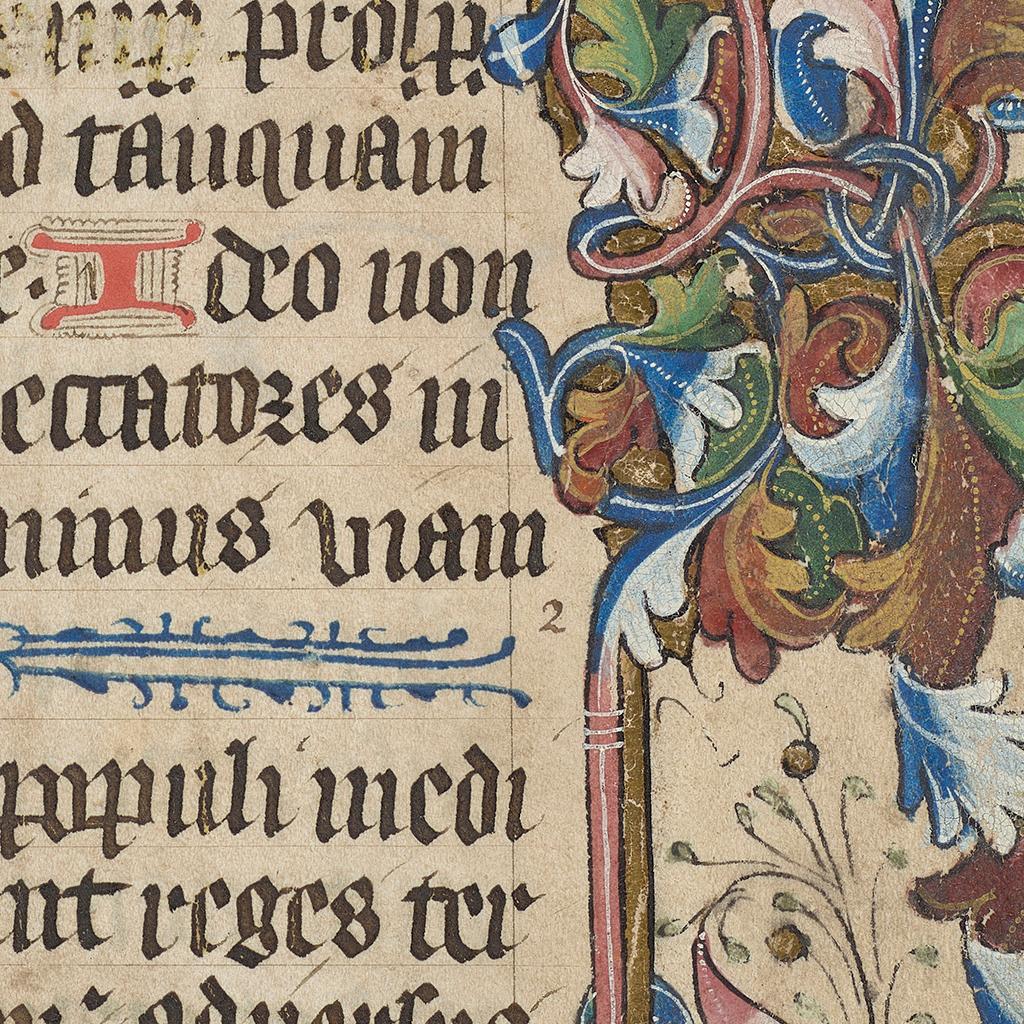 prosp
d tanquam
e. Ideo non
eccatores in
minus viam
2
populi medi
nt reges ter
adversus